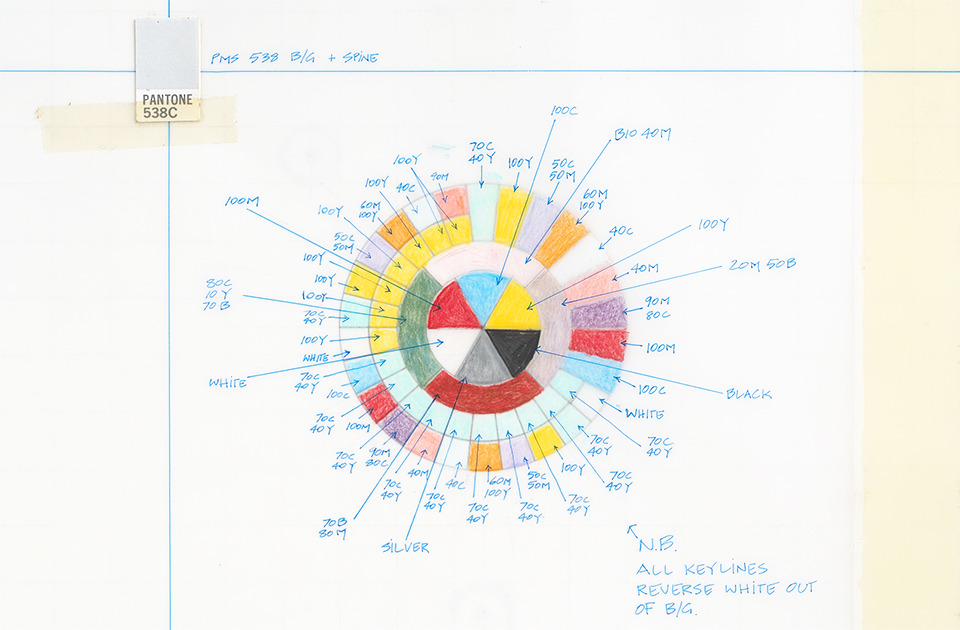 PMS 538 B/G + SPINE
PANTONE
538C
100C
B10 40M
70C
40Y
100Y
50C
50M
60M
100Y
100Y
90M
40C
100Y
60M
100Y
100M
100Y
50C
50M
40C
100Y
100Y
40M
20M 50B
100Y
80C
10Y
70B
100Y
70C
40Y
90M
80C
100Y
100M
WHITE
WHITE
70C
40Y
100C
100C
BLACK
WHITE
70C
40Y
100M
70C
40Y
90M
80C
70C
40Y
40M
70C
40Y
70C
40Y
40C
60M
100Y
70C
40Y
50C
50M
70C
40Y
100Y
70C
40Y
70C
40Y
70C
40Y
70B
80M
SILVER
N.B.
ALL KEYLINES
REVERSE WHITE OUT
OF B/G.